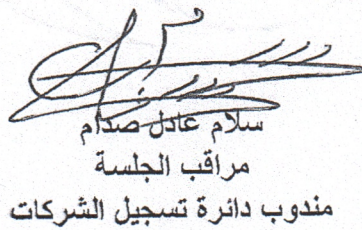 سلام عادل صدام
مراقب الجلسة
مندوب دائرة تسجيل الشركات